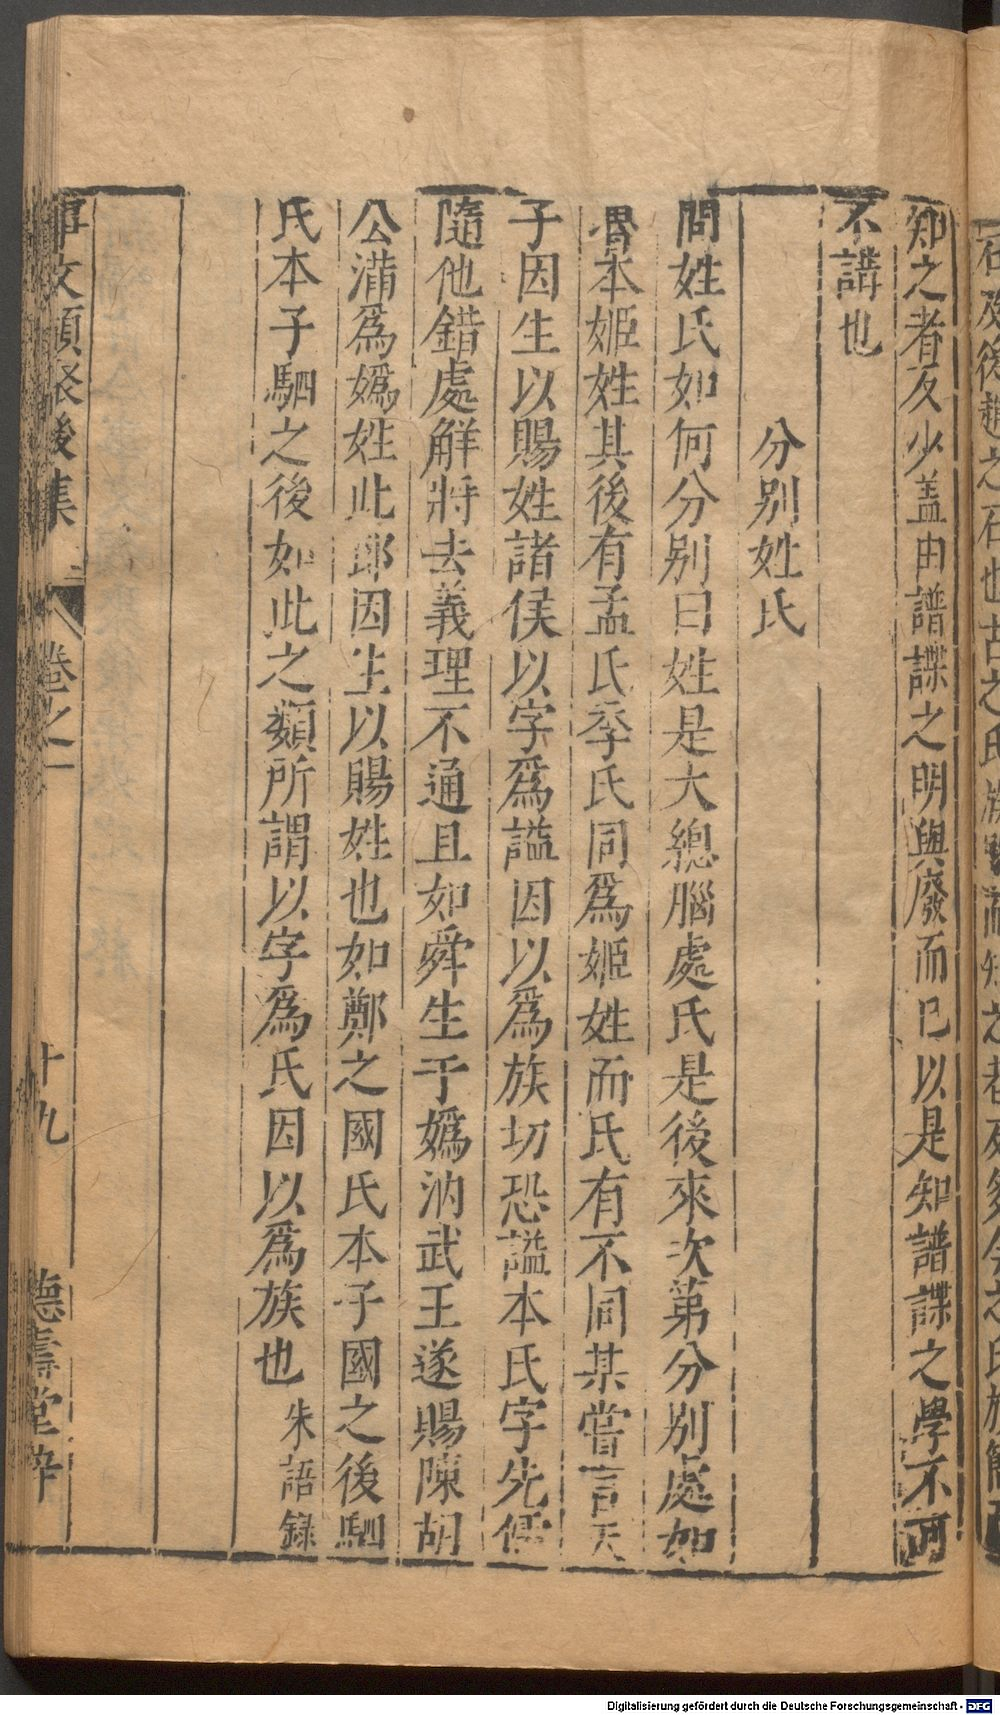 石及後趙之石也古之氏族繁而知之者反多今之氏族簡而
知之者反少盖由譜諜之明與廢而已以是知譜諜之學不可
不講也
分別姓氏
問姓氏如何分別曰姓是大緫腦處氏是後來次第分別處如
魯本姬姓其後有孟氏季氏同爲姬姓而氏有不同某嘗言天
子因生以賜姓諸侯以字爲謚因以爲族切恐謚本氏字先儒
隨他錯處解將去義理不通且如舜生于嬀汭武王遂賜陳胡
公滿爲嬀姓此郎因生以賜姓也如鄭之國氏本子國之後駟
氏本子駟之後如此之類所謂以字爲氏因以爲族也 朱語録
事文類聚後集 卷之一 十九 德壽堂梓
Digitalisierung gefördert durch die Deutsche Forschungsgemeinschaft - DFG